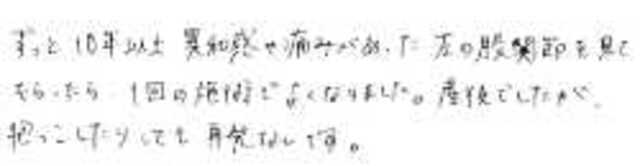 ずっと10年以上 異和感や痛みがあった左の股関節を見て
もらったら、1回の施術で良くなりました。産後でしたが、
抱っこしたりしても再発なしです。